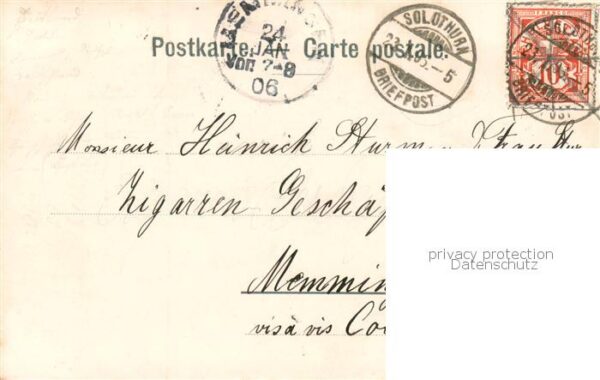 Postkarte. Carte postale.
24
JAN
VOR 7-8
06
SOLOTHURN
BRIEFPOST
FRANCO
10
Monsieur Heinrich Sturm
Zigarren Geschä
Memmin
vis à vis
privacy protection
Datenschutz